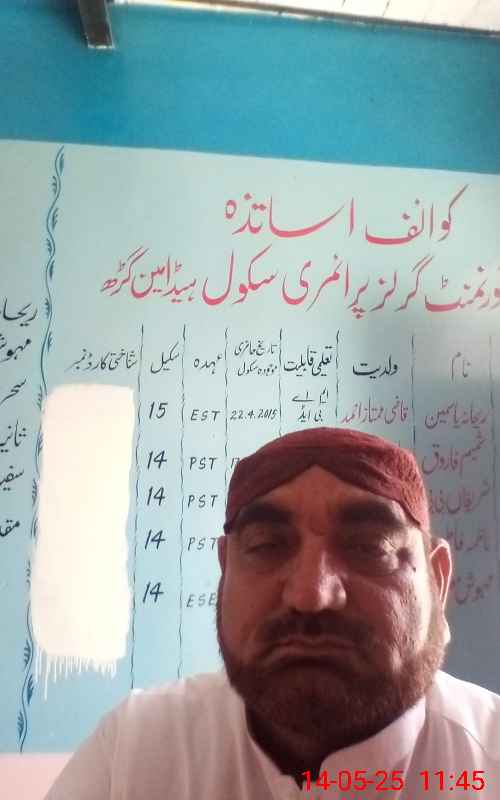 کوائف اساتذہ
گورنمنٹ گرلز پرائمری سکول ہیڈ امین گڑھ
نام ولدیت تعلیمی قابلیت تاریخ حاضری موجودہ سکول عہدہ سکیل شناختی کارڈ نمبر
ریحانہ یاسمین قاضی ممتاز احمد ایم اے بی ایڈ 22.4.2015 EST 15
شمیم فاروق PST 14
شریفاں بی بی PST 14
PST 14
مہوش ESE 14
ریحانہ
مہوش
سحر
ثانیہ
14-05-25 11:45